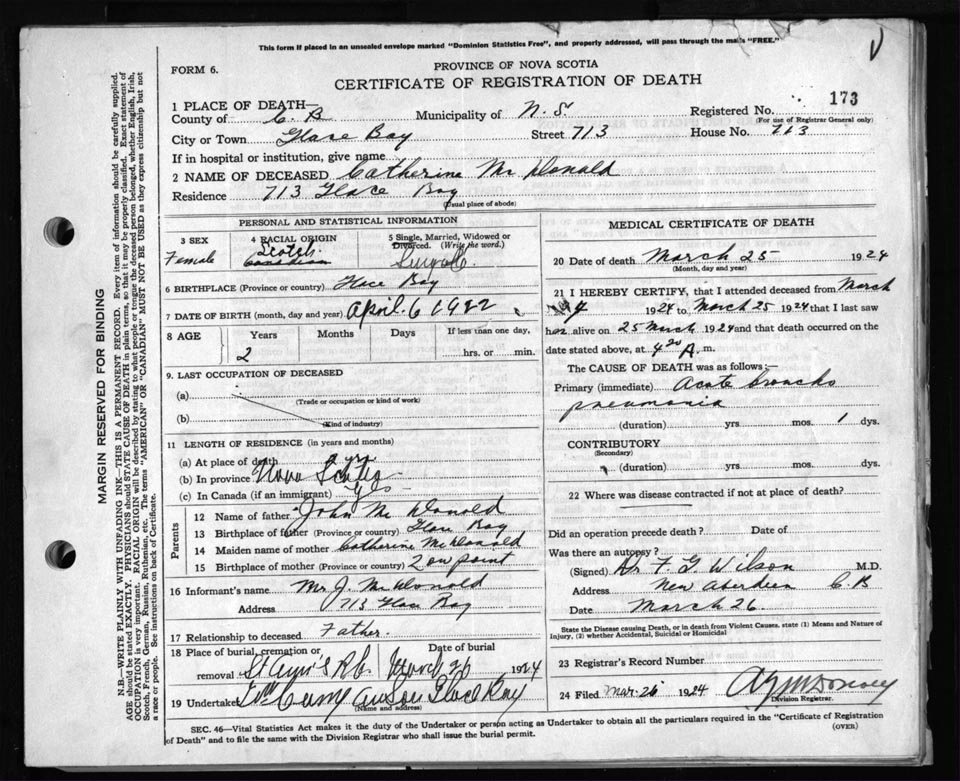 This form if placed in an unsealed envelope marked "Dominion Statistics Free", and properly addressed, will pass through the mails "FREE."
FORM 6.
PROVINCE OF NOVA SCOTIA
CERTIFICATE OF REGISTRATION OF DEATH
173
1 PLACE OF DEATH—
County of C. B. Municipality of N. S. Registered No.
(For use of Registrar General only)
City or Town Glace Bay Street 713 House No. 713
If in hospital or institution, give name
2 NAME OF DECEASED Catherine Mc Donald
Residence 713 Glace Bay
(Usual place of abode)
PERSONAL AND STATISTICAL INFORMATION
3 SEX 4 RACIAL ORIGIN 5 Single, Married, Widowed or Divorced. (Write the word.)
Female Scotch Canadian Single
6 BIRTHPLACE (Province or country) Glace Bay
7 DATE OF BIRTH (month, day and year) April 6 1922
8 AGE Years Months Days If less than one day,
2 hrs. or min.
9. LAST OCCUPATION OF DECEASED
(a)
(Trade or occupation or kind of work)
(b)
(Kind of industry)
11 LENGTH OF RESIDENCE (in years and months)
(a) At place of death 2 yrs
(b) In province Nova Scotia
(c) In Canada (if an immigrant) Yes
Parents
12 Name of father John Mc Donald
13 Birthplace of father (Province or country) Glace Bay
14 Maiden name of mother Catherine McDonald
15 Birthplace of mother (Province or country) Low point
16 Informant's name Mr J. McDonald
Address 713 Glace Bay
17 Relationship to deceased Father.
18 Place of burial, cremation or removal Date of burial
St Ann's R.C. March 26 1924
19 Undertaker Glace Bay
(Name and address)
MEDICAL CERTIFICATE OF DEATH
20 Date of death March 25 1924
(Month, day and year)
21 I HEREBY CERTIFY, that I attended deceased from March
24 1924 to March 25 1924 that I last saw
her alive on 25 March 1924 and that death occurred on the
date stated above, at 4 20 A. m.
The CAUSE OF DEATH was as follows:—
Primary (immediate) Acute broncho
pneumonia
(duration) yrs. mos. 1 dys.
CONTRIBUTORY
(Secondary)
(duration) yrs. mos. dys.
22 Where was disease contracted if not at place of death?
Did an operation precede death? Date of
Was there an autopsy?
(Signed) Dr F. G. Wilson M.D.
Address New Aberdeen C.B
Date March 26.
State the Disease causing Death, or in death from Violent Causes, state (1) Means and Nature of Injury, (2) whether Accidental, Suicidal or Homicidal
23 Registrar's Record Number
24 Filed Mar. 26 1924
Division Registrar
SEC. 46—Vital Statistics Act makes it the duty of the Undertaker or person acting as Undertaker to obtain all the particulars required in the "Certificate of Registration
of Death" and to file the same with the Division Registrar who shall issue the burial permit.
(OVER)
MARGIN RESERVED FOR BINDING
N.B.—WRITE PLAINLY WITH UNFADING INK—THIS IS A PERMANENT RECORD. Every item of information should be carefully supplied.
AGE should be stated EXACTLY. PHYSICIANS should STATE CAUSE OF DEATH in plain terms, so that it may be properly classified. Exact statement of
OCCUPATION is very important. RACIAL ORIGIN will be described by stating to what people or tongue the deceased person belonged, whether English, Irish,
Scotch, French, German, Russian, Ruthenian, etc. The terms "AMERICAN" OR "CANADIAN" MUST NOT BE USED as they express citizenship but not
a race or people. See instructions on back of Certificate.